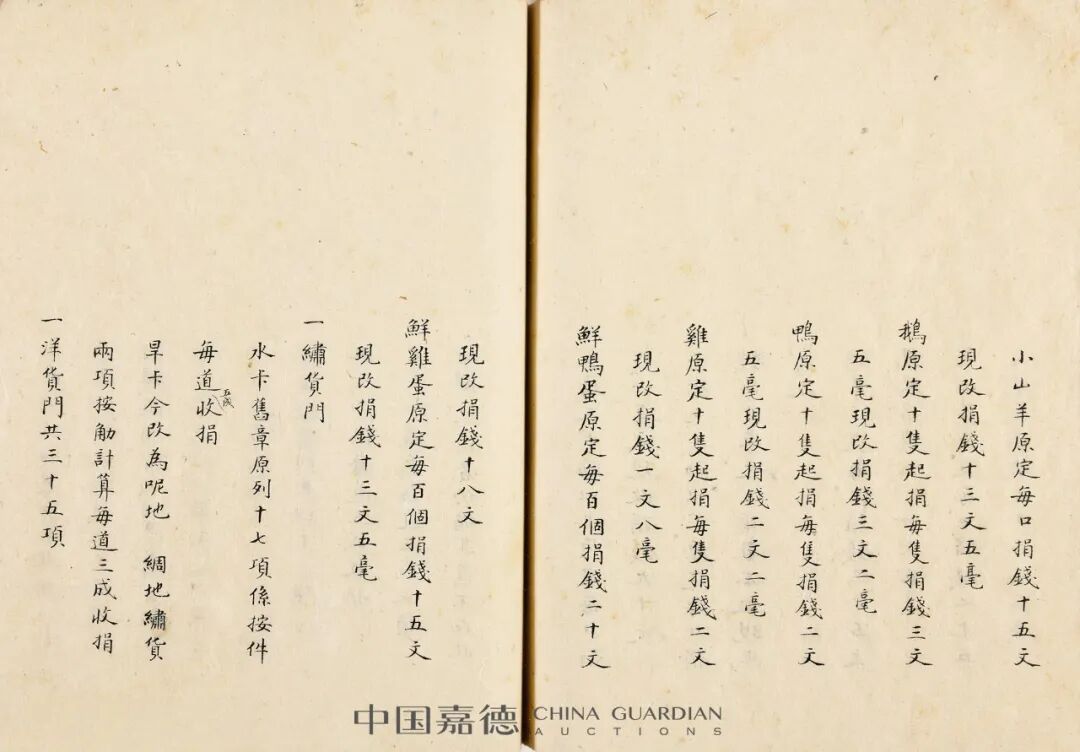 小山羊原定每口捐錢十五文
現改捐錢十三文五毫
鵝原定十隻起捐每隻捐錢三文
五毫現改捐錢三文二毫
鴨原定十隻起捐每隻捐錢二文
五毫現改捐錢二文二毫
雞原定十隻起捐每隻捐錢二文
現改捐錢一文八毫
鮮鴨蛋原定每百個捐錢二十文
現改捐錢十八文
鮮雞蛋原定每百個捐錢十五文
現改捐錢十三文五毫
一繡貨門
水卡舊章原列十七項係按件
每道五成收捐
旱卡今改為呢地 綢地繡貨
兩項按觔計算每道三成收捐
一洋貨門共三十五項
中国嘉德 CHINA GUARDIAN AUCTIONS